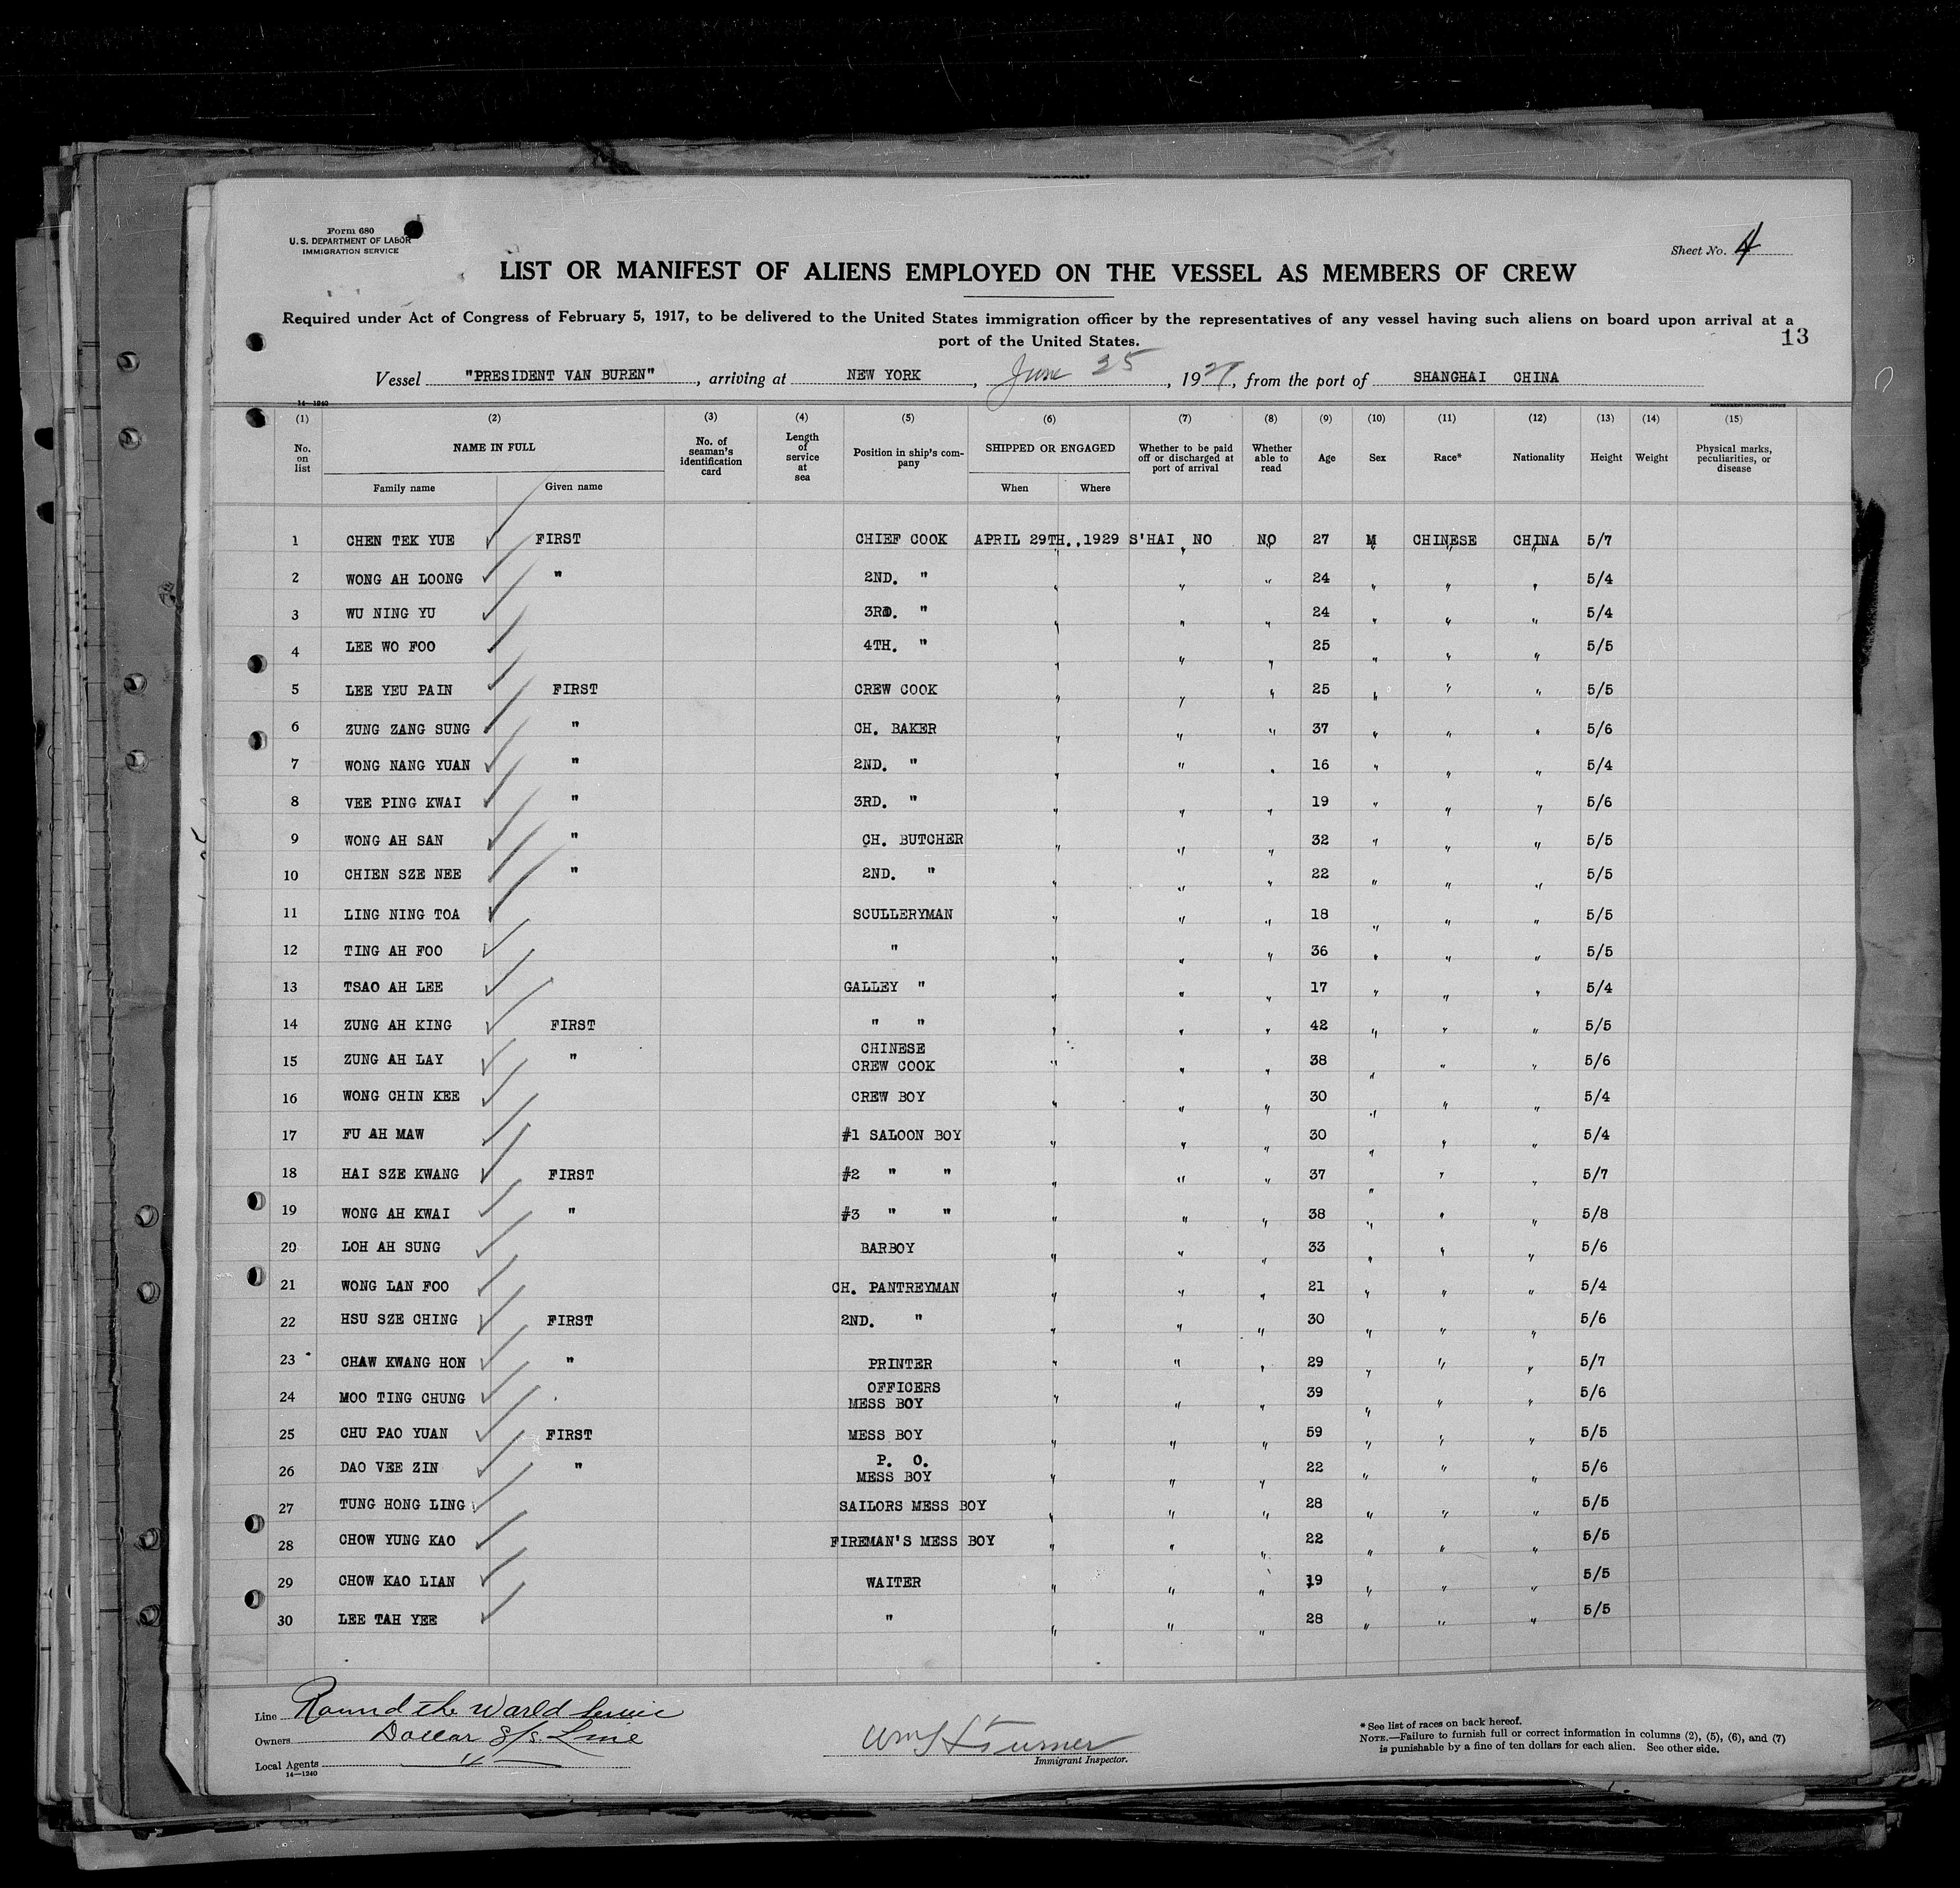 Form 680
U. S. DEPARTMENT OF LABOR
IMMIGRATION SERVICE
Sheet No. 4
LIST OR MANIFEST OF ALIENS EMPLOYED ON THE VESSEL AS MEMBERS OF CREW
Required under Act of Congress of February 5, 1917, to be delivered to the United States immigration officer by the representatives of any vessel having such aliens on board upon arrival at a
port of the United States.
13
Vessel "PRESIDENT VAN BUREN", arriving at NEW YORK, June 25, 1929, from the port of SHANGHAI CHINA
14—1240
(1) (2) (3) (4) (5) (6) (7) (8) (9) (10) (11) (12) (13) (14) (15)
No. on list NAME IN FULL No. of seaman's identification card Length of service at sea Position in ship's company SHIPPED OR ENGAGED Whether to be paid off or discharged at port of arrival Whether able to read Age Sex Race* Nationality Height Weight Physical marks, peculiarities, or disease
Family name Given name When Where
1 CHEN TEK YUE FIRST CHIEF COOK APRIL 29TH., 1929 S'HAI NO NO 27 M CHINESE CHINA 5/7
2 WONG AH LOONG " 2ND. " " " " 24 " " " 5/4
3 WU NING YU 3RD. " " " " 24 " " " 5/4
4 LEE WO FOO 4TH. " " " " 25 " " " 5/5
5 LEE YEU PAIN FIRST CREW COOK " " " 25 " " " 5/5
6 ZUNG ZANG SUNG " CH. BAKER " " " 37 " " " 5/6
7 WONG NANG YUAN " 2ND. " " " " 16 " " " 5/4
8 VEE PING KWAI " 3RD. " " " " 19 " " " 5/6
9 WONG AH SAN " CH. BUTCHER " " " 32 " " " 5/5
10 CHIEN SZE NEE " 2ND. " " " " 22 " " " 5/5
11 LING NING TOA SCULLERYMAN " " " 18 " " " 5/5
12 TING AH FOO " " " " 36 " " " 5/5
13 TSAO AH LEE GALLEY " " " " 17 " " " 5/4
14 ZUNG AH KING FIRST " " " " " 42 " " " 5/5
15 ZUNG AH LAY " CHINESE CREW COOK " " " 38 " " " 5/6
16 WONG CHIN KEE CREW BOY " " " 30 " " " 5/4
17 FU AH MAW #1 SALOON BOY " " " 30 " " " 5/4
18 HAI SZE KWANG FIRST #2 " " " " " 37 " " " 5/7
19 WONG AH KWAI " #3 " " " " " 38 " " " 5/8
20 LOH AH SUNG BARBOY " " " 33 " " " 5/6
21 WONG LAN FOO CH. PANTREYMAN " " " 21 " " " 5/4
22 HSU SZE CHING FIRST 2ND. " " " " 30 " " " 5/6
23 CHAW KWANG HON " PRINTER " " " 29 " " " 5/7
24 MOO TING CHUNG OFFICERS MESS BOY " " " 39 " " " 5/6
25 CHU PAO YUAN FIRST MESS BOY " " " 59 " " " 5/5
26 DAO VEE ZIN " P. O. MESS BOY " " " 22 " " " 5/6
27 TUNG HONG LING SAILORS MESS BOY " " " 28 " " " 5/5
28 CHOW YUNG KAO FIREMAN'S MESS BOY " " " 22 " " " 5/5
29 CHOW KAO LIAN WAITER " " " 19 " " " 5/5
30 LEE TAH YEE " " " " 28 " " " 5/5
Line Round the World Service
Owners Dollar S/S Line
Local Agents "
14—1240
Immigrant Inspector.
* See list of races on back hereof.
NOTE.—Failure to furnish full or correct information in columns (2), (5), (6), and (7)
is punishable by a fine of ten dollars for each alien. See other side.